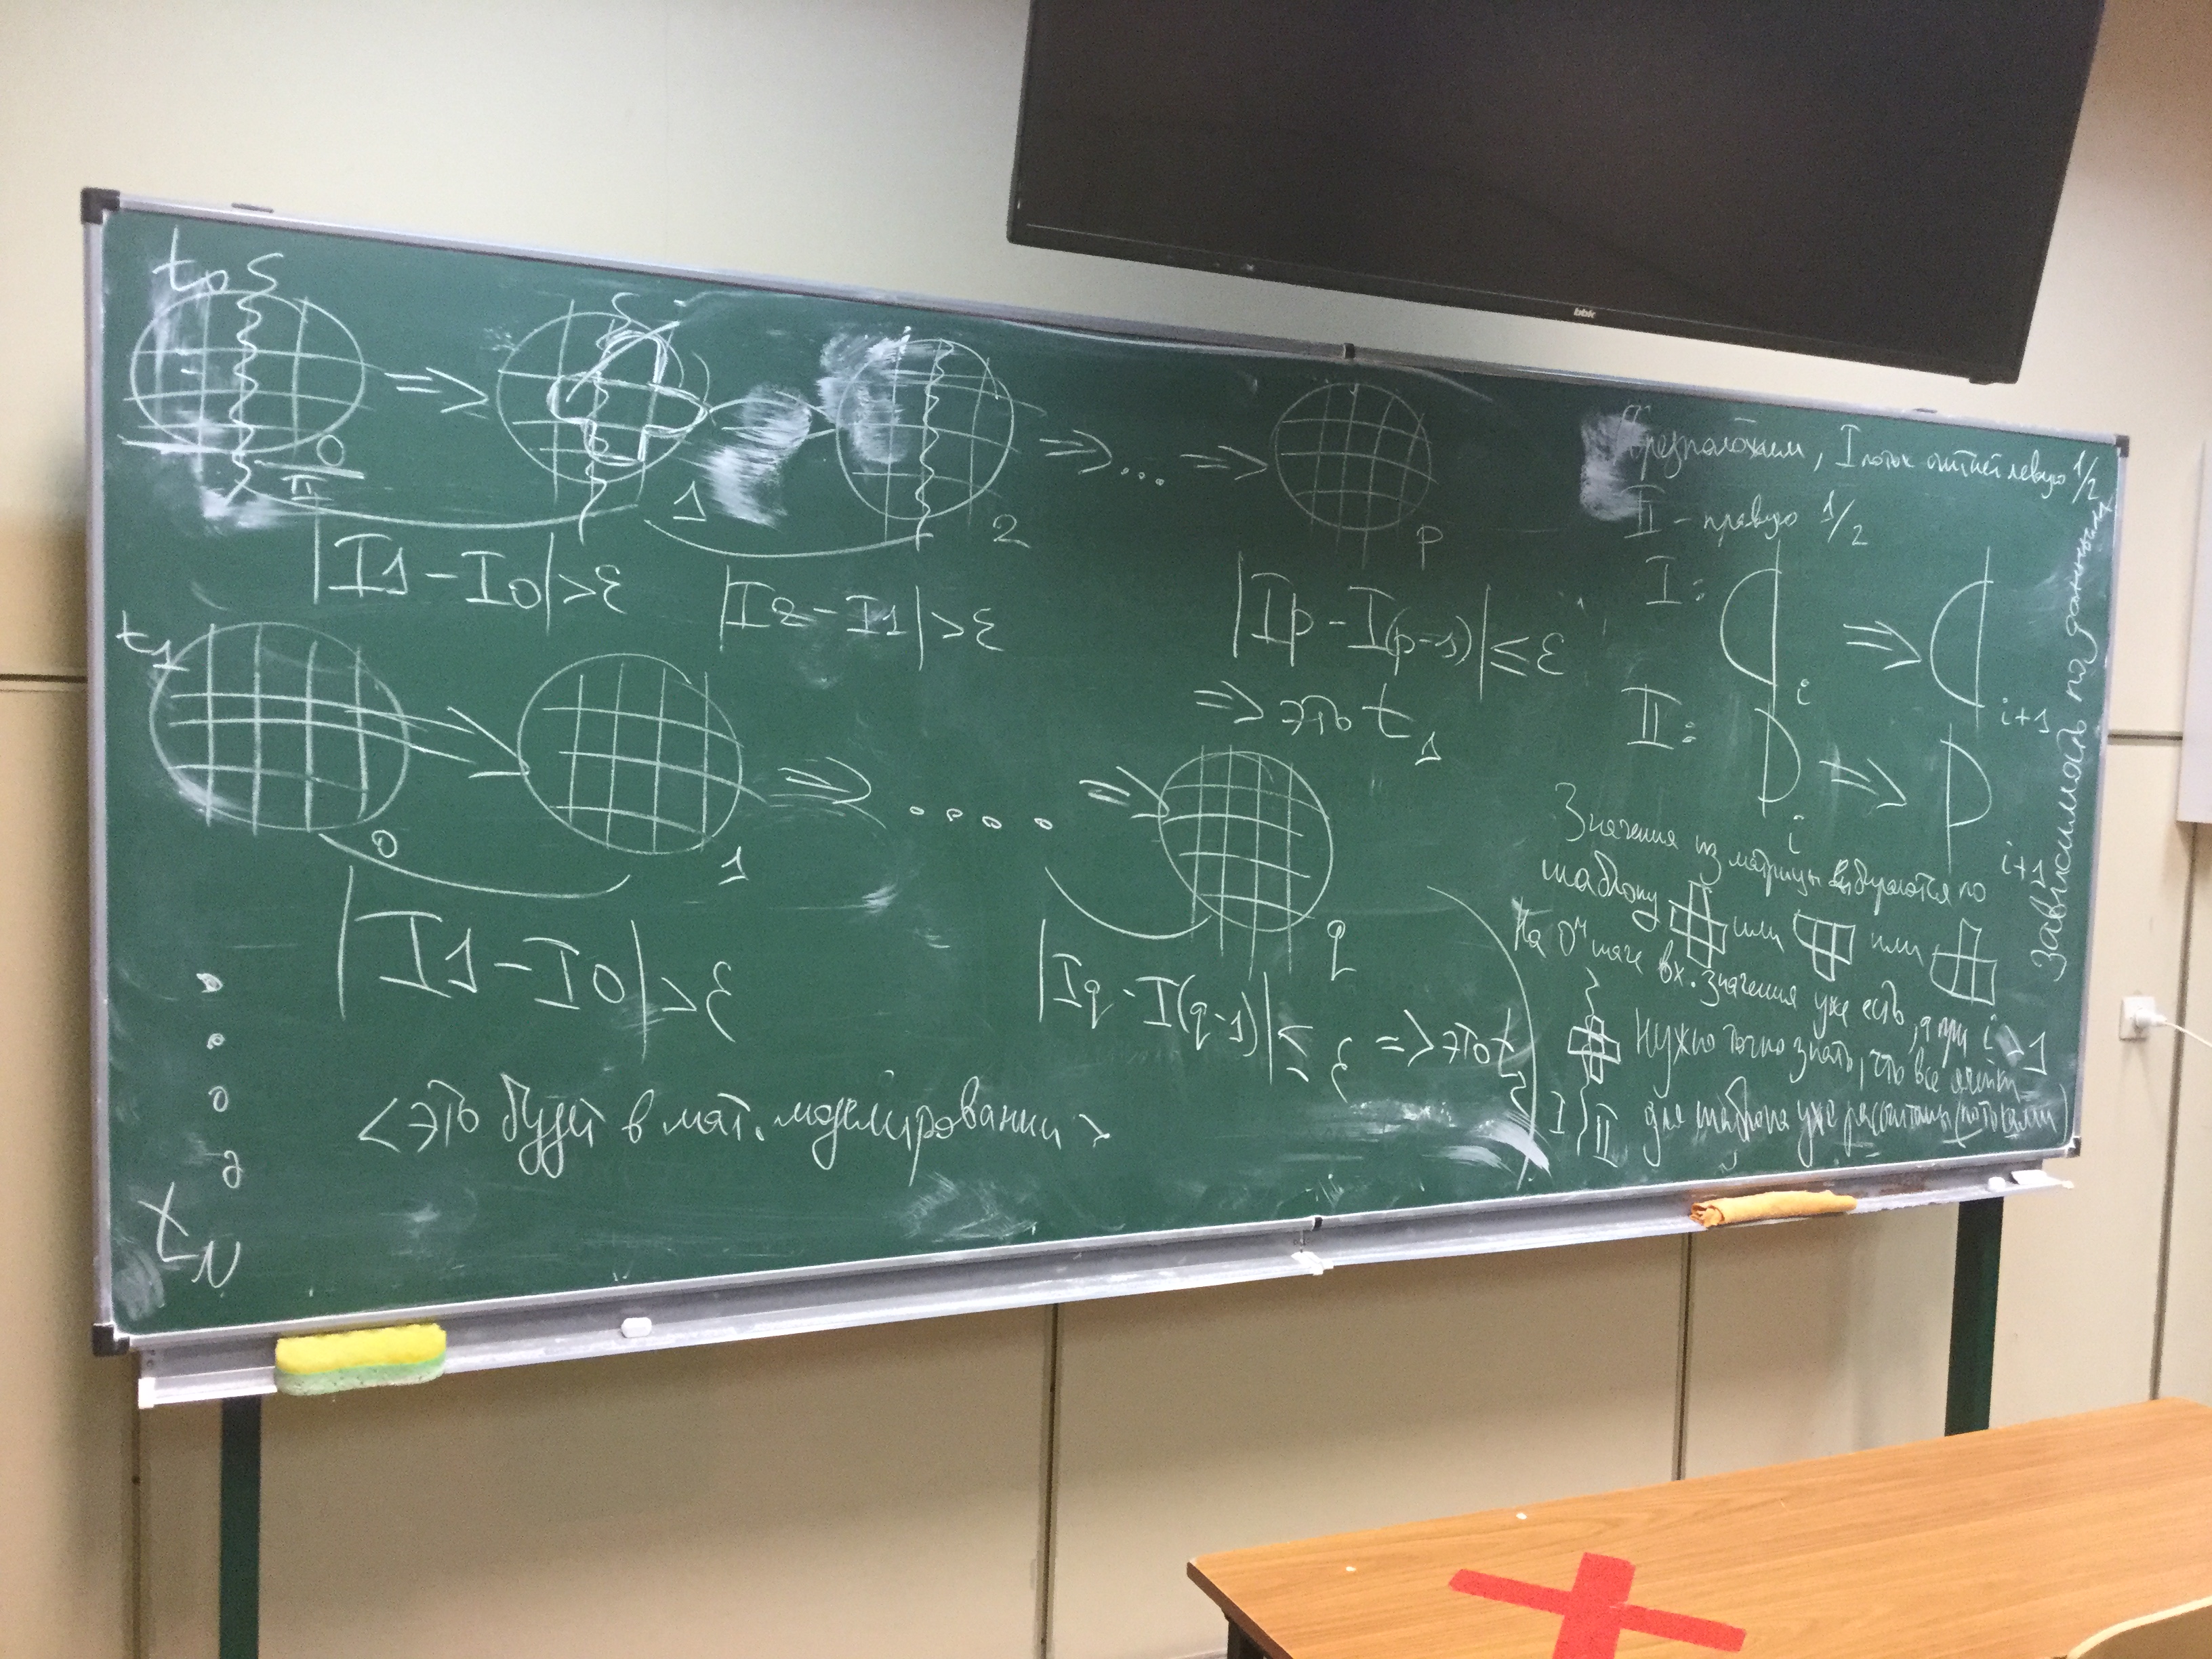 bbk
t₀
0
II
1
2
p
|I1 - I0| > ε
|I2 - I1| > ε
|Ip - I(p-1)| ≤ ε
=> это t₁
t₁
0
1
q
|I1 - I0| > ε
|Iq - I(q-1)| ≤ ε => это t
<это будет в мат. моделировании>
t_N
Предположим, I поток считает левую 1/2
II - правую 1/2
I:
i
i+1
II:
i
i+1
Значения из матрицы выбираются по
шаблону или или
На 0ᵐ шаге вх. значения уже есть, а при i ≥ 1
нужно точно знать, что все ячейки
I II для шаблона уже рассчитаны (потоками)
Зависимость по данным